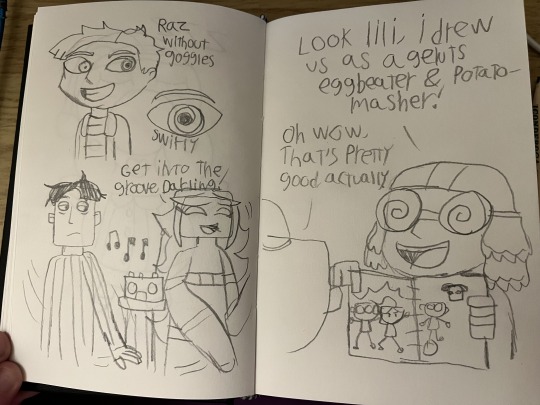 Raz
without
goggles
swirly
Get into the
groove Darling!
Look lili, i drew
us as agents
eggbeater & Potato-
masher!
Oh wow,
That's Pretty
good actually